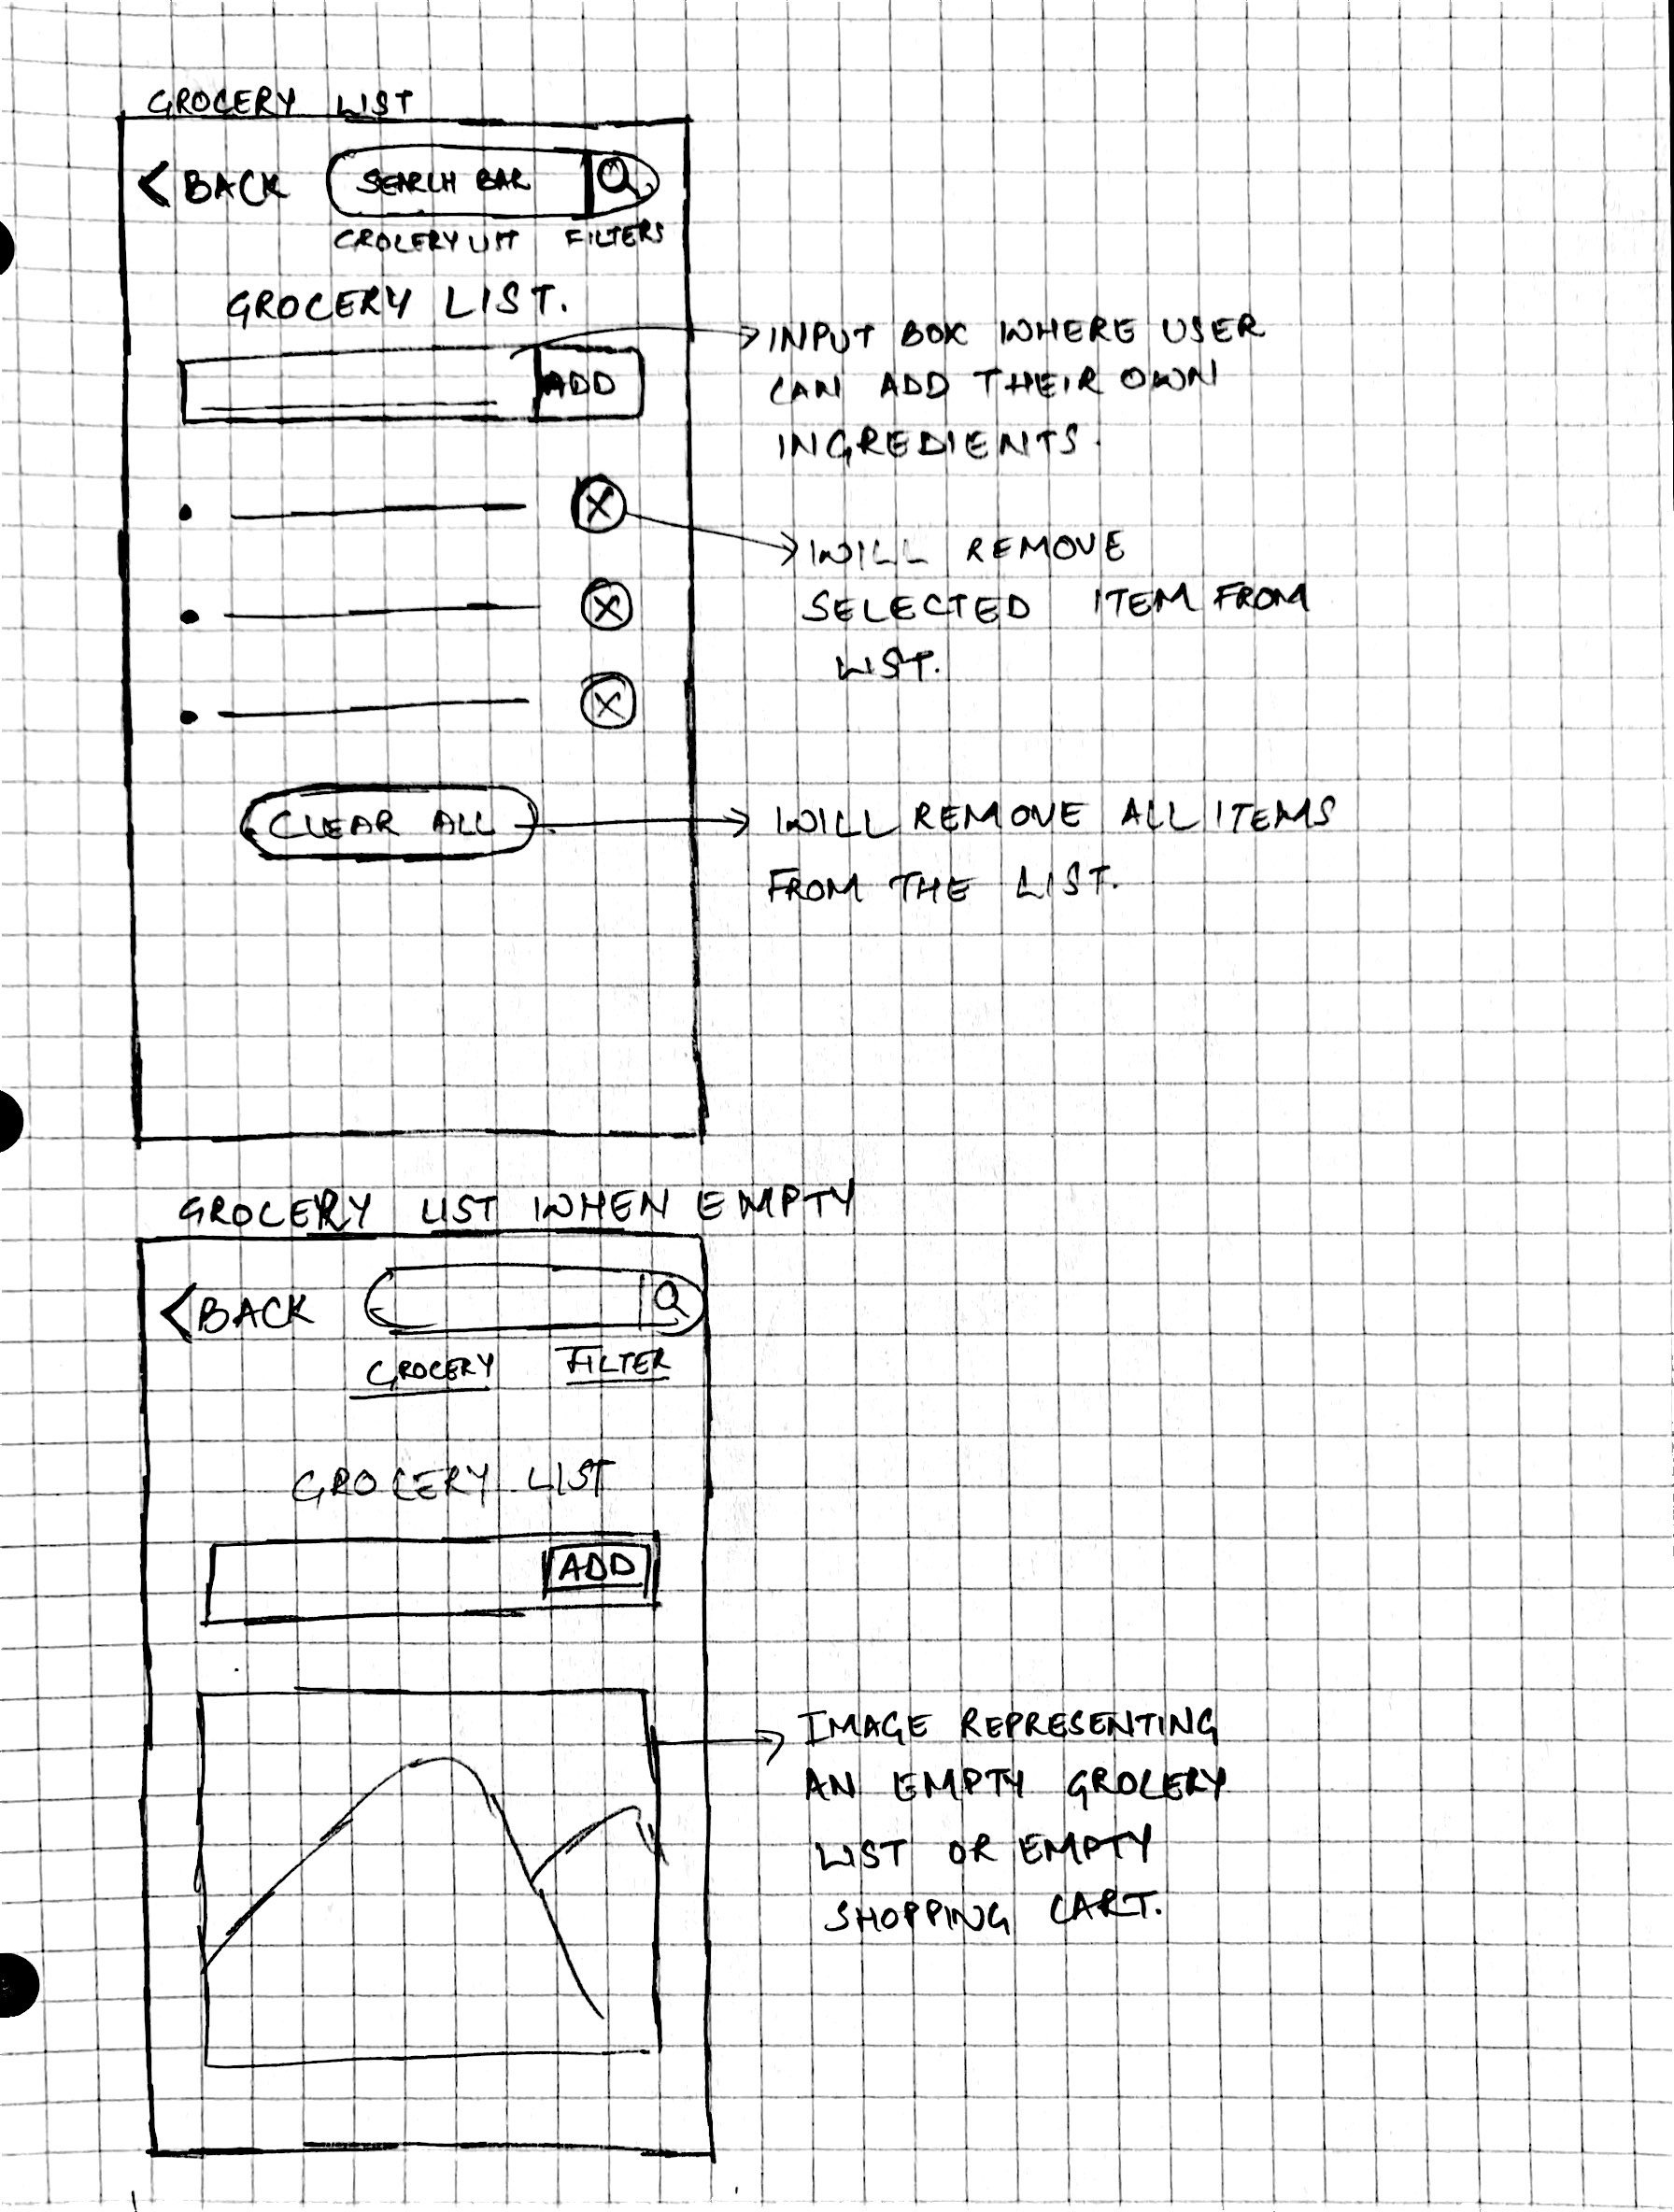 GROCERY LIST
< BACK SEARCH BAR
GROCERY LIST FILTERS
GROCERY LIST.
ADD
→ INPUT BOX WHERE USER
CAN ADD THEIR OWN
INGREDIENTS.
X
→ WILL REMOVE
SELECTED ITEM FROM
LIST.
X
X
CLEAR ALL → WILL REMOVE ALL ITEMS
FROM THE LIST.
GROCERY LIST WHEN EMPTY
< BACK
GROCERY FILTER
GROCERY LIST
ADD
→ IMAGE REPRESENTING
AN EMPTY GROCERY
LIST OR EMPTY
SHOPPING CART.